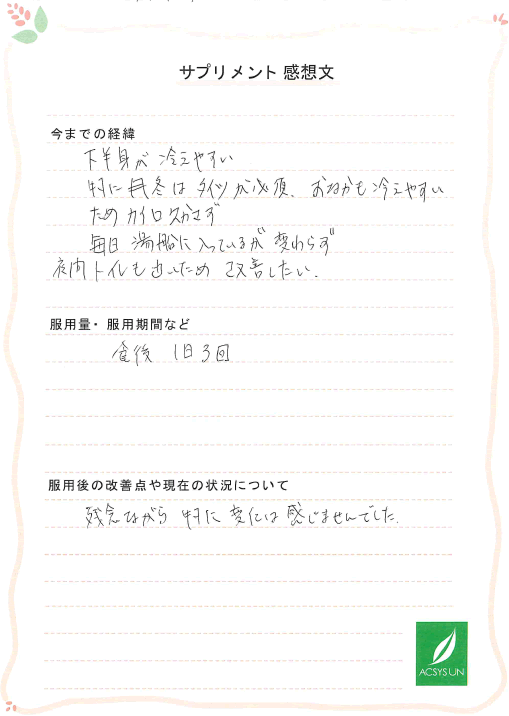 サプリメント 感想文
今までの経緯
下半身が 冷えやすい
特に 冬は タイツが必須、おなかも冷えやすい
ため カイロ欠かさず
毎日 湯船に入っているが 変わらず
夜間トイレも 近いため 改善したい.
服用量・服用期間など
食後 1日3回
服用後の改善点や現在の状況について
残念ながら 特に 変化は 感じませんでした.
ACSYSUN